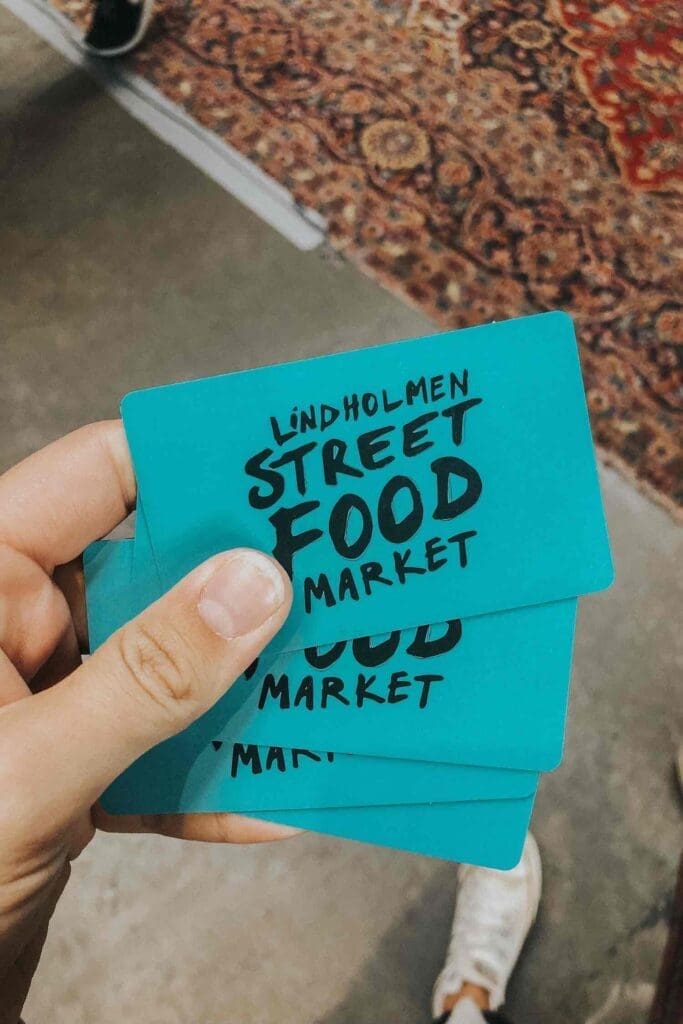 LINDHOLMEN
STREET
FOOD
MARKET
FOOD
MARKET
MARK